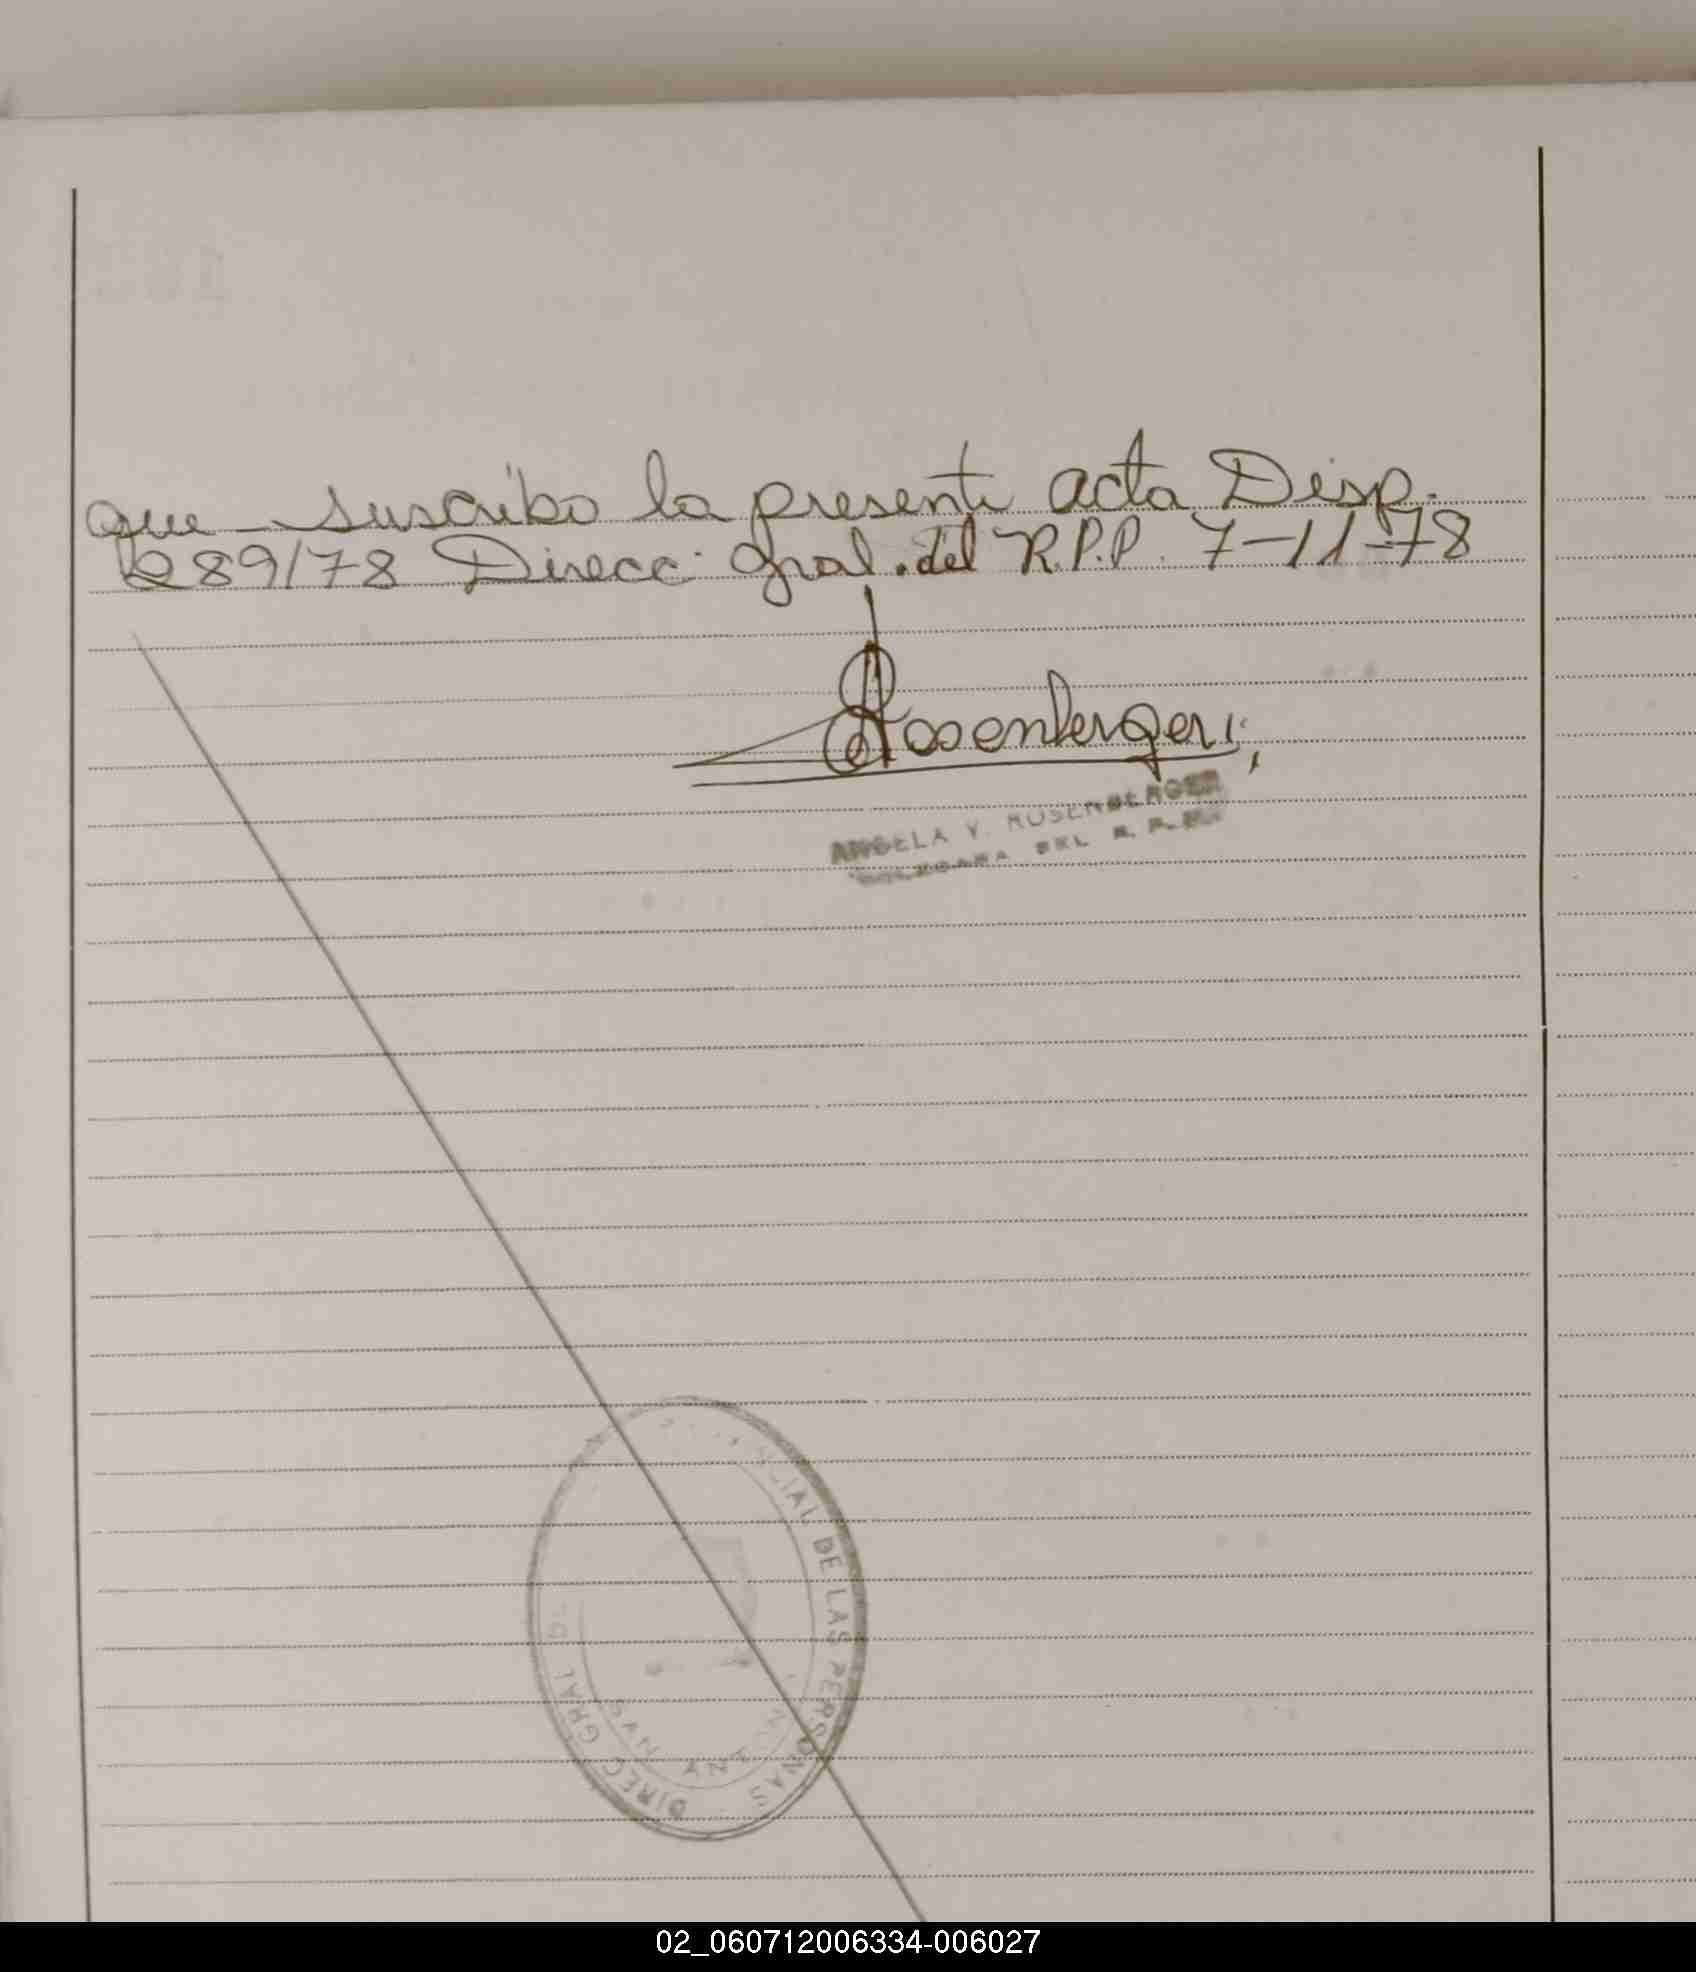 que suscribo la presente acta Disp.
289/78 Direcc. Gral. del R.P.P. 7-11-78
Rosenberger
ANGELA V. ROSENBERGER
DEL R. P.
DIREC GRAL CIAL DE LAS PERSONAS
SAN
02_060712006334-006027